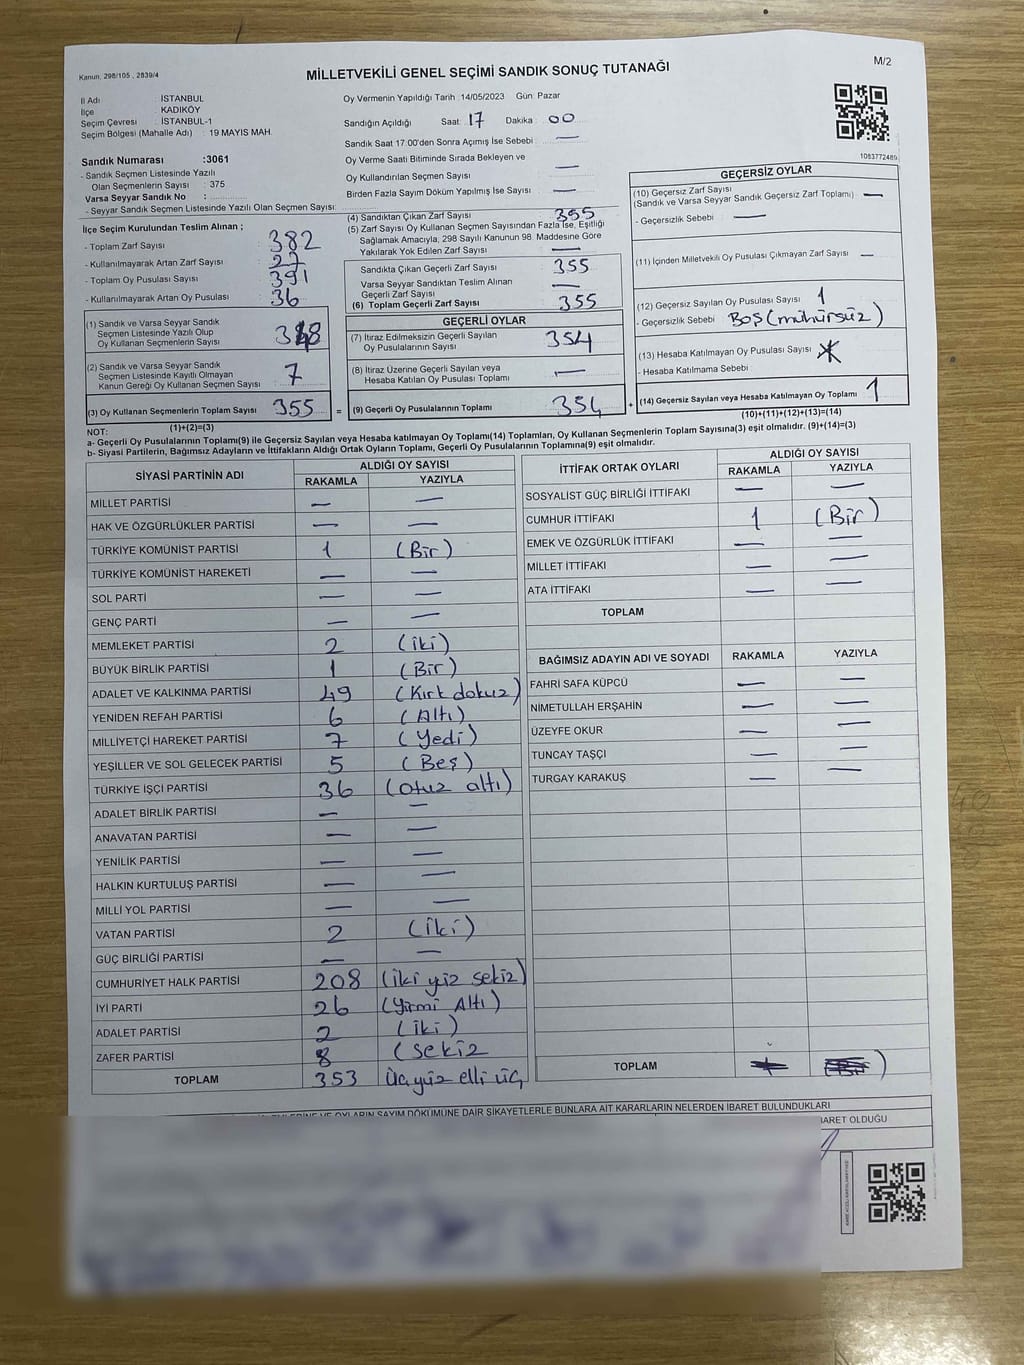 Kanun, 298/105 , 2839/4
MİLLETVEKİLİ GENEL SEÇİMİ SANDIK SONUÇ TUTANAĞI
M/2
İl Adı : İSTANBUL
İlçe : KADIKÖY
Seçim Çevresi : İSTANBUL-1
Seçim Bölgesi (Mahalle Adı) : 19 MAYIS MAH.
Sandık Numarası :3061
- Sandık Seçmen Listesinde Yazılı
Olan Seçmenlerin Sayısı : 375
Varsa Seyyar Sandık No :
- Seyyar Sandık Seçmen Listesinde Yazılı Olan Seçmen Sayısı:
Oy Vermenin Yapıldığı Tarih :14/05/2023 Gün: Pazar
Sandığın Açıldığı Saat: 17 Dakika: 00
Sandık Saat 17:00'den Sonra Açımış İse Sebebi : —
Oy Verme Saati Bitiminde Sırada Bekleyen ve
Oy Kullandırılan Seçmen Sayısı : —
Birden Fazla Sayım Döküm Yapılmış İse Sayısı : —
1083772489
İlçe Seçim Kurulundan Teslim Alınan ;
- Toplam Zarf Sayısı : 382
- Kullanılmayarak Artan Zarf Sayısı : 27
- Toplam Oy Pusulası Sayısı : 391
- Kullanılmayarak Artan Oy Pusulası : 36
(1) Sandık ve Varsa Seyyar Sandık
Seçmen Listesinde Yazılı Olup
Oy Kullanan Seçmenlerin Sayısı : 348
(2) Sandık ve Varsa Seyyar Sandık
Seçmen Listesinde Kayıtlı Olmayan
Kanun Gereği Oy Kullanan Seçmen Sayısı : 7
(3) Oy Kullanan Seçmenlerin Toplam Sayısı 355 =
(1)+(2)=(3)
(4) Sandıktan Çıkan Zarf Sayısı : 355
(5) Zarf Sayısı Oy Kullanan Seçmen Sayısından Fazla İse, Eşitliği
Sağlamak Amacıyla, 298 Sayılı Kanunun 98. Maddesine Göre
Yakılarak Yok Edilen Zarf Sayısı : —
Sandıkta Çıkan Geçerli Zarf Sayısı : 355
Varsa Seyyar Sandıktan Teslim Alınan
Geçerli Zarf Sayısı : —
(6) Toplam Geçerli Zarf Sayısı : 355
GEÇERLİ OYLAR
(7) İtiraz Edilmeksizin Geçerli Sayılan
Oy Pusulalarının Sayısı : 354
(8) İtiraz Üzerine Geçerli Sayılan veya
Hesaba Katılan Oy Pusulası Toplamı : —
(9) Geçerli Oy Pusulalarının Toplamı : 354 +
GEÇERSİZ OYLAR
(10) Geçersiz Zarf Sayısı
(Sandık ve Varsa Seyyar Sandık Geçersiz Zarf Toplamı) : —
- Geçersizlik Sebebi : —
(11) İçinden Milletvekili Oy Pusulası Çıkmayan Zarf Sayısı : —
(12) Geçersiz Sayılan Oy Pusulası Sayısı : 1
- Geçersizlik Sebebi : Boş (mühürsüz)
(13) Hesaba Katılmayan Oy Pusulası Sayısı :
- Hesaba Katılmama Sebebi :
(14) Geçersiz Sayılan veya Hesaba Katılmayan Oy Toplamı : 1
(10)+(11)+(12)+(13)=(14)
NOT:
a- Geçerli Oy Pusulalarının Toplamı(9) ile Geçersiz Sayılan veya Hesaba katılmayan Oy Toplamı(14) Toplamları, Oy Kullanan Seçmenlerin Toplam Sayısına(3) eşit olmalıdır. (9)+(14)=(3)
b- Siyasi Partilerin, Bağımsız Adayların ve İttifakların Aldığı Ortak Oyların Toplamı, Geçerli Oy Pusulalarının Toplamına(9) eşit olmalıdır.
SİYASİ PARTİNİN ADI ALDIĞI OY SAYISI
RAKAMLA YAZIYLA
MİLLET PARTİSİ — —
HAK VE ÖZGÜRLÜKLER PARTİSİ — —
TÜRKİYE KOMÜNİST PARTİSİ 1 (Bir)
TÜRKİYE KOMÜNİST HAREKETİ — —
SOL PARTİ — —
GENÇ PARTİ — —
MEMLEKET PARTİSİ 2 (iki)
BÜYÜK BİRLİK PARTİSİ 1 (Bir)
ADALET VE KALKINMA PARTİSİ 49 (Kırk dokuz)
YENİDEN REFAH PARTİSİ 6 (Altı)
MİLLİYETÇİ HAREKET PARTİSİ 7 (Yedi)
YEŞİLLER VE SOL GELECEK PARTİSİ 5 (Beş)
TÜRKİYE İŞÇİ PARTİSİ 36 (Otuz altı)
ADALET BİRLİK PARTİSİ — —
ANAVATAN PARTİSİ — —
YENİLİK PARTİSİ — —
HALKIN KURTULUŞ PARTİSİ — —
MİLLİ YOL PARTİSİ — —
VATAN PARTİSİ 2 (İki)
GÜÇ BİRLİĞİ PARTİSİ — —
CUMHURİYET HALK PARTİSİ 208 (iki yüz sekiz)
İYİ PARTİ 26 (Yirmi Altı)
ADALET PARTİSİ 2 (İki)
ZAFER PARTİSİ 8 (sekiz
TOPLAM 353 Üçyüz elli üç
İTTİFAK ORTAK OYLARI ALDIĞI OY SAYISI
RAKAMLA YAZIYLA
SOSYALİST GÜÇ BİRLİĞİ İTTİFAKI — —
CUMHUR İTTİFAKI 1 (Bir)
EMEK VE ÖZGÜRLÜK İTTİFAKI — —
MİLLET İTTİFAKI — —
ATA İTTİFAKI — —
TOPLAM
BAĞIMSIZ ADAYIN ADI VE SOYADI RAKAMLA YAZIYLA
FAHRİ SAFA KÜPCÜ — —
NİMETULLAH ERŞAHİN — —
ÜZEYFE OKUR — —
TUNCAY TAŞÇI — —
TURGAY KARAKUŞ — —
TOPLAM
OYLARIN SAYIM DÖKÜMÜNE DAİR ŞİKAYETLERLE BUNLARA AİT KARARLARIN NELERDEN İBARET BULUNDUKLARI
BARET OLDUĞU